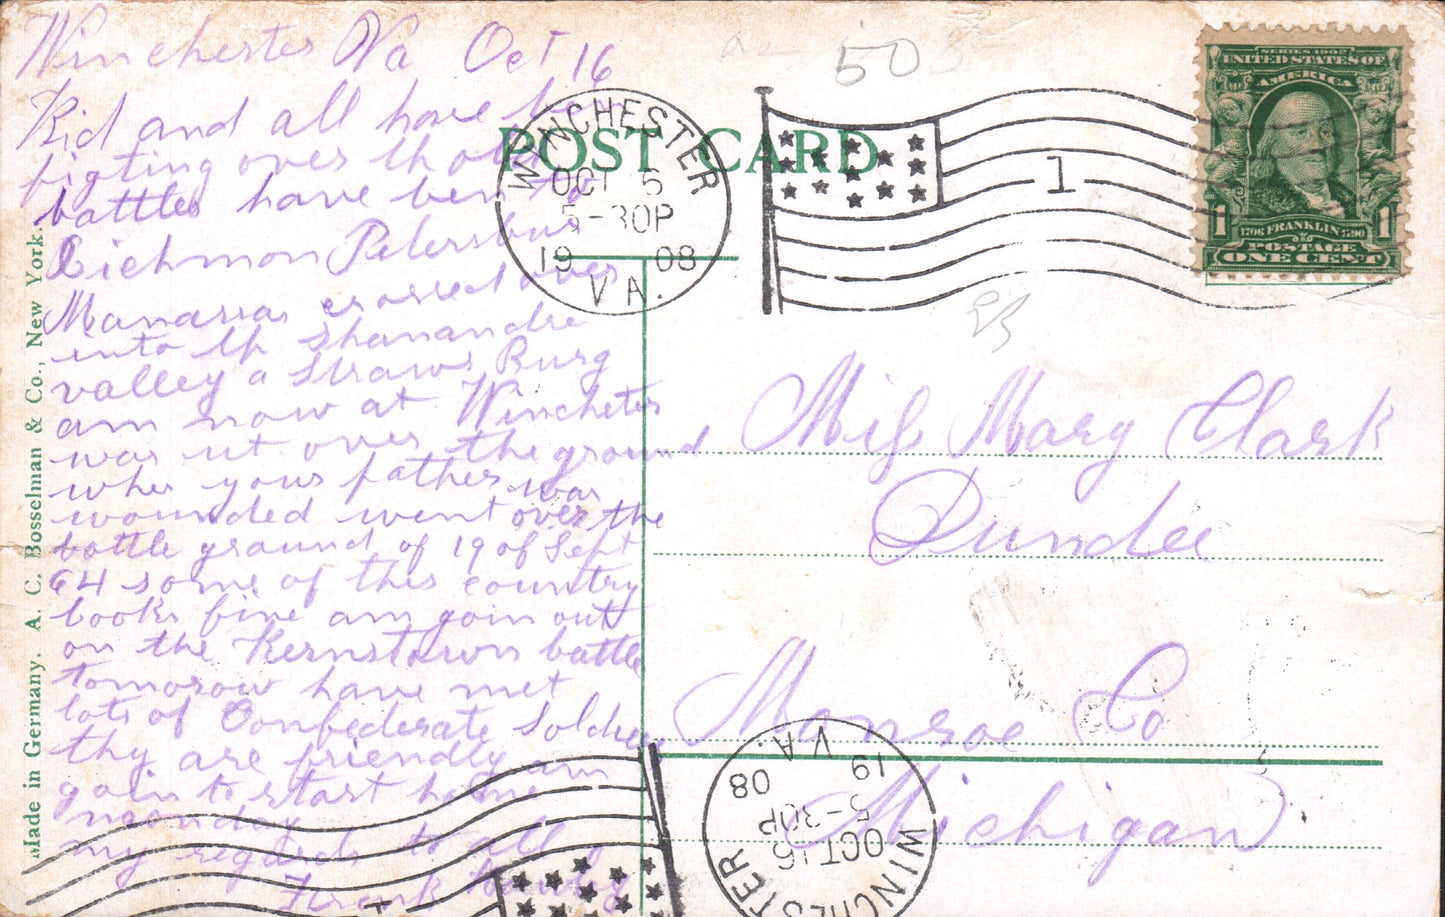 Winchester Va Oct 16
Kid and all have ben
figting over th old
battles have ben to
Richmon Petersburg
Manassas crossed over
into th Shanandre
valley a Straws Burg
am now at Winchester
was ut over the ground
wher your father was
wounded went over the
battle ground of 19 of Sept
64 some of this country
looks fine am goin out
on the Kernstown battle
tomorow have met
lots of Confederate Soldiers
thy are friendly am
goin to start home
monday
my regards to all
Frank
Made in Germany. A. C. Bosselman & Co., New York.
POST CARD
50
WINCHESTER
OCT 6
5-30P
19 08
VA.
1
SERIES 1902
UNITED STATES OF
AMERICA
1 1
1706 FRANKLIN 1790
POSTAGE
ONE CENT
Miss Mary Clark
Dundee
Monroe Co
Michigan
WINCHESTER
OCT 16
5-30P
19 08
VA.